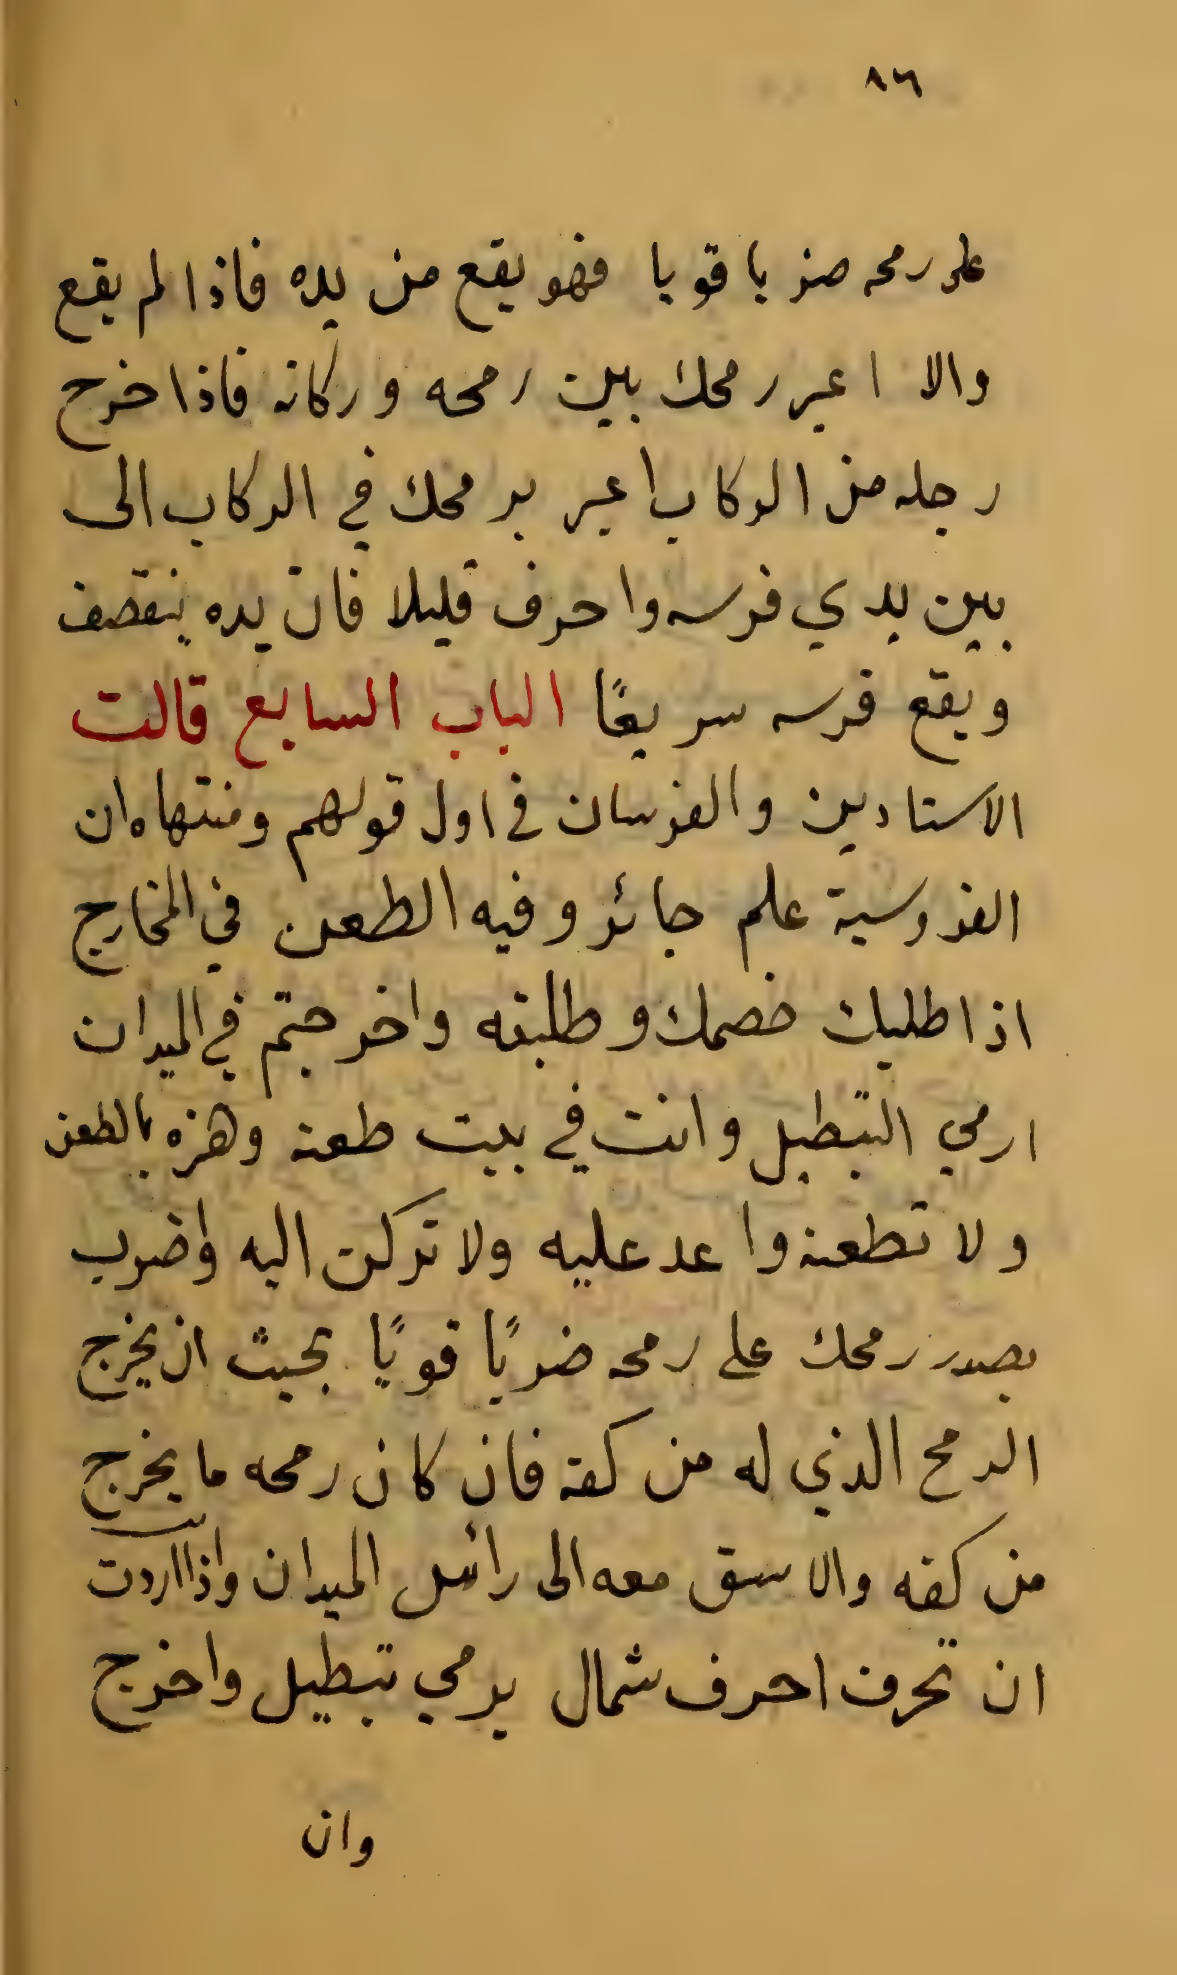 ٨٦
على رمحه ضربا قويا فهو يقع من يده فاذا لم يقع
والا اعبر رمحك بين رمحه وركابه فاذا خرج
رجله من الركاب اعبر برمحك في الركاب الى
بين يدي فرسه واحرف قليلا فان يده ينقصف
ويقع فرسه سريعًا الباب السابع قالت
الاستادين والفرسان في اول قولهم ومنتهاه ان
الفروسية علم جائز وفيه الطعن في المخارج
اذا طلبك خصمك وطلبته واخرجتم في الميدان
ارمي التبطيل وانت في بيت طعنه وهزه بالطعن
ولا تطعنه واعد عليه ولا تركن اليه واضرب
بصدر رمحك على رمحه ضربًا قويًا بحيث ان يخرج
الرمح الذي له من كفه فان كان رمحه ما يخرج
من كفه والا سق معه الى رائس الميدان واذا اردت
ان تحرف احرف شمال برمي تبطيل واخرج
وان